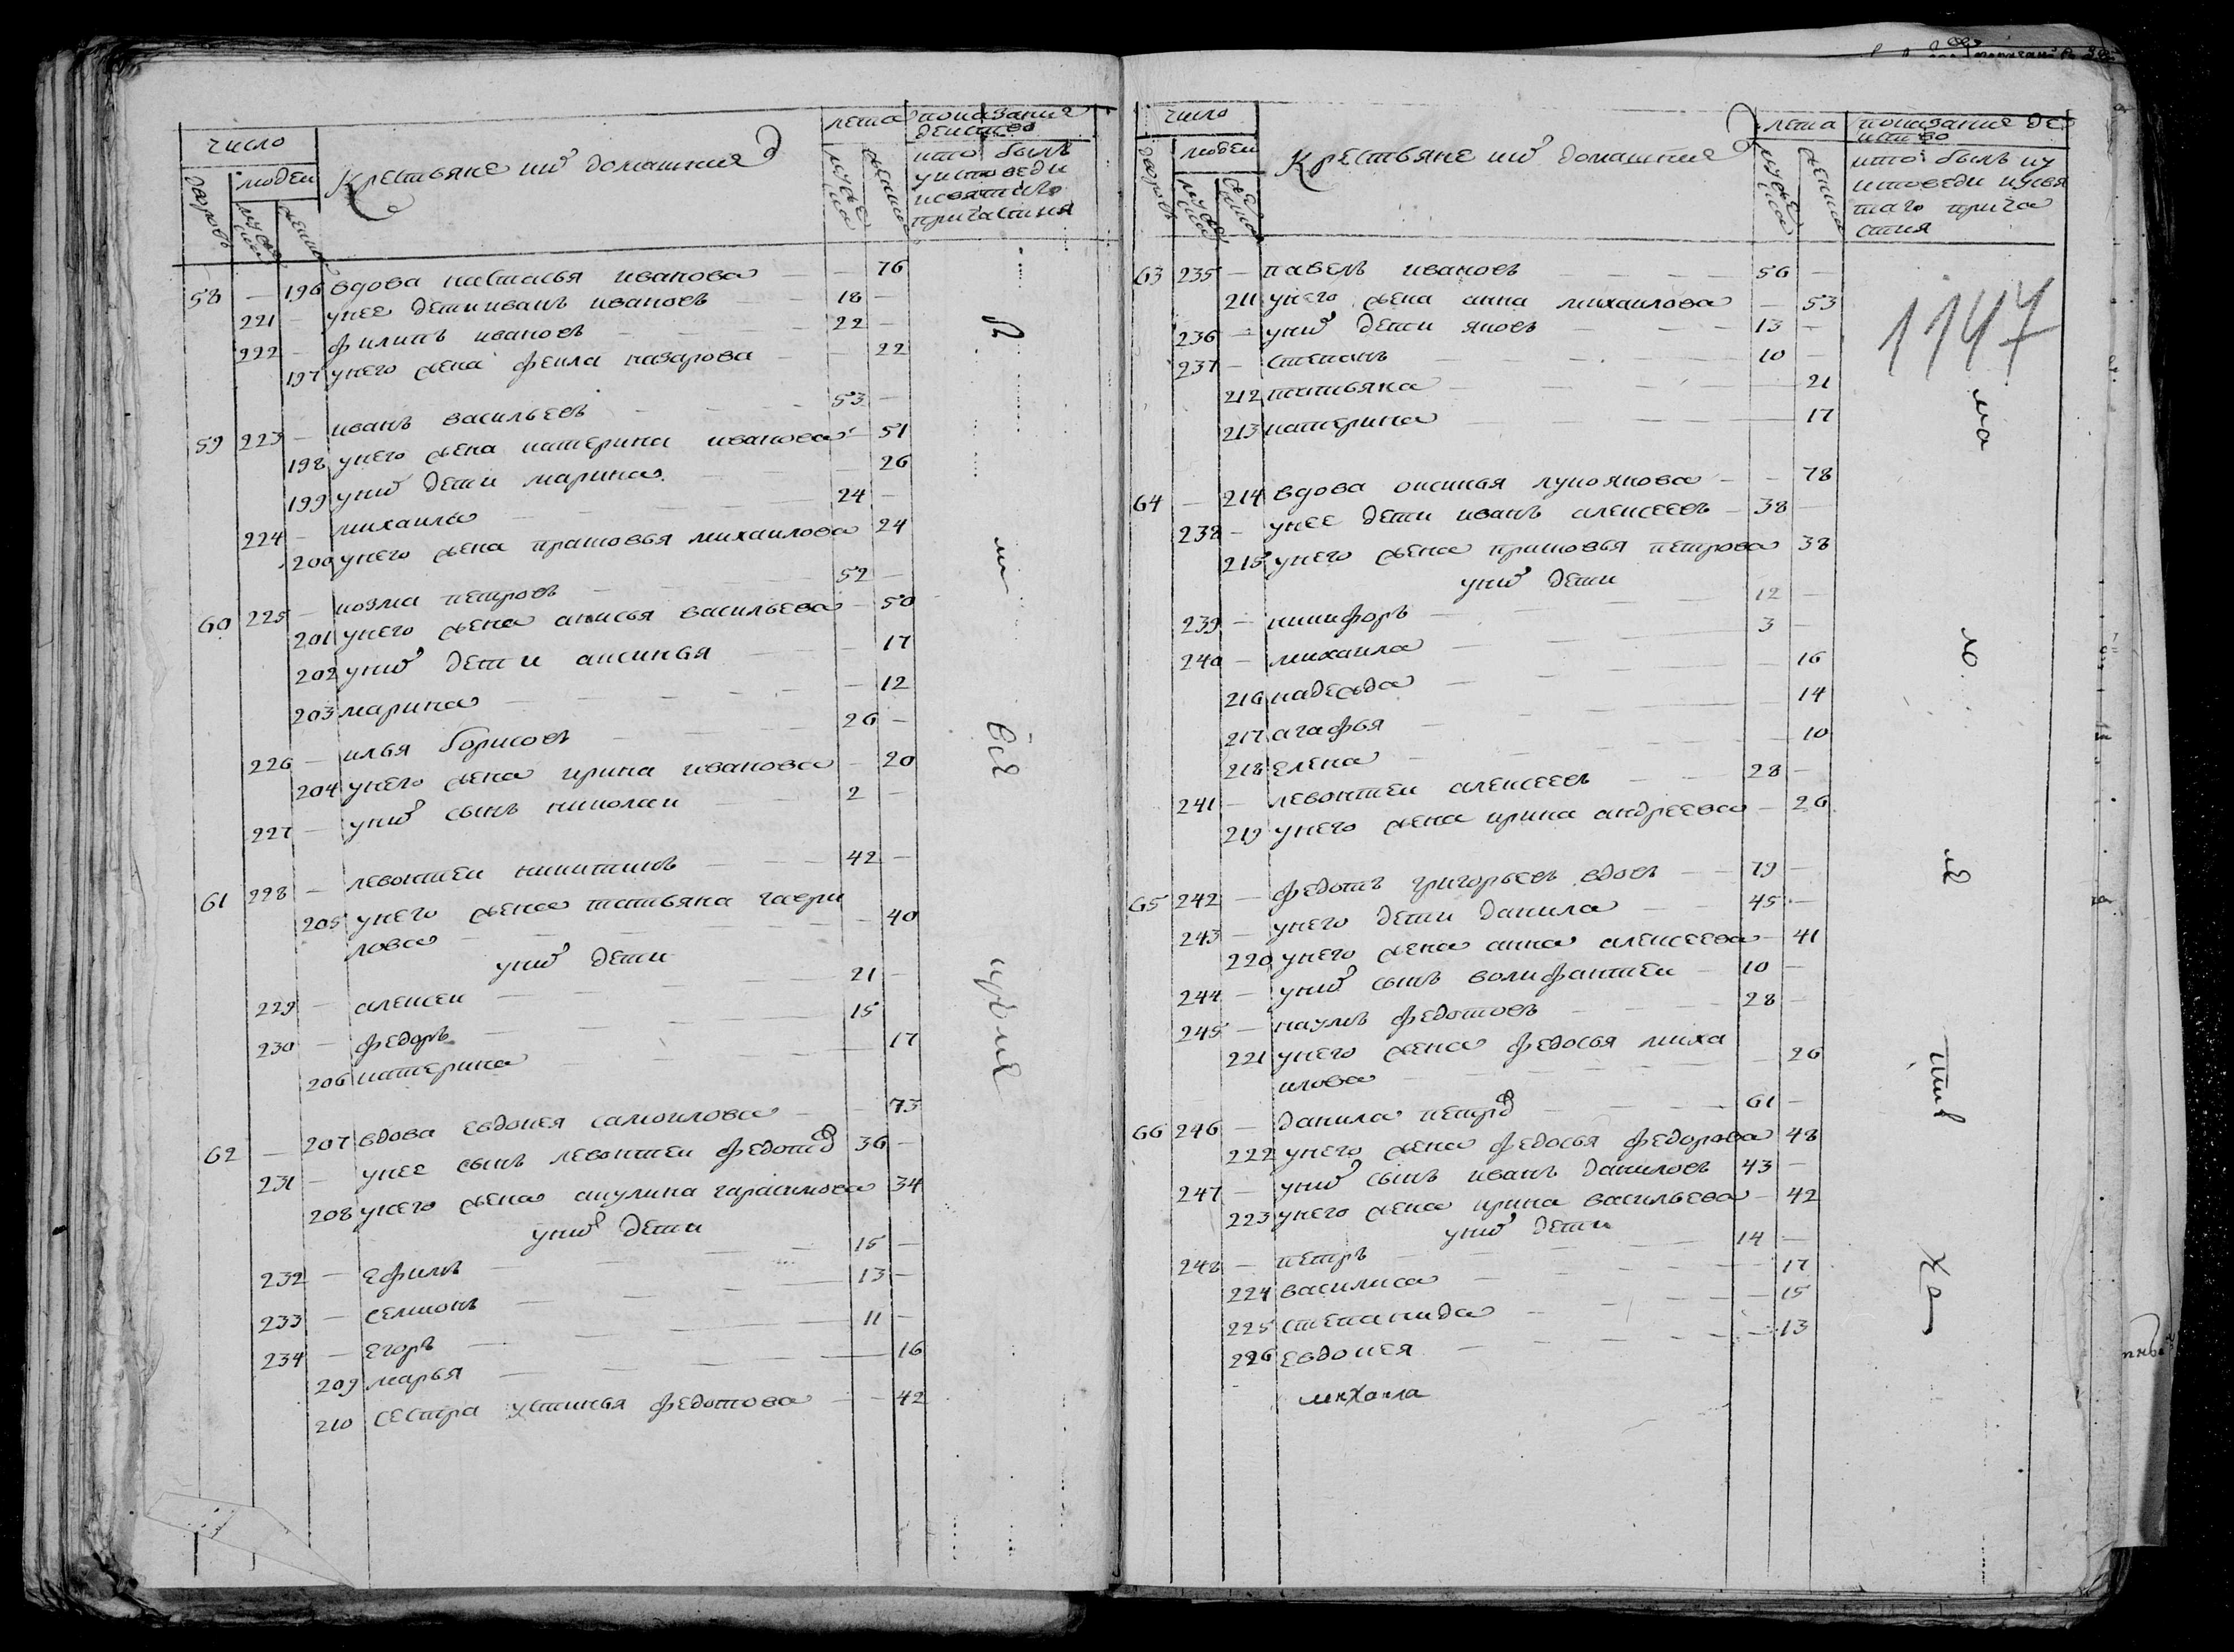 число
людей
дворовъ
мужеска
женска
Крестьяне ихъ домашния
лета
мужеска
женска
показание
действо
кто былъ
уисповеди
исвятаго
причастия
58 — 196 вдова наталья иванова — — 76
221 — унее дети иванъ ивановъ — 18 —
222 — филипъ ивановъ — 22 —
197 унего жена фекла назарова — — 22
59 223 — иванъ васильевъ — 53 —
198 унего жена катерина иванова — 51
199 уних дети марина — — 26
224 — михаила — 24 —
200 унего жена прасковья михаилова 24
60 225 — козма петровъ — 52 —
201 унего жена анисья васильева — 50
202 уних дети аксинья — — 17
203 марина — — 12
226 — илья борисовъ — 26 —
204 унего жена ирина иванова — 20
227 — уних сынъ николаи — 2 —
61 228 — левонтеи никитинъ — 42 —
205 унего жена татьяна гаври
лова — — 40
уних дети
229 — алексеи — 21 —
230 — федоръ — 15
206 катерина — — 17
62 — 207 вдова евдокея самоилова — — 73
231 — унее сынъ левонтеи федотов 36 —
208 унего жена акулина гарасимова 34
уних дети
232 — ефимъ — 15 —
233 — семионъ — 13 —
234 — егоръ — 11 —
209 марья — 16
210 сестра устинья федотова — — 42
число
людей
дворовъ
мужеска
женска
Крестьяне ихъ домашние
лета
мужеска
женска
показание де
иство
кто былъ иу
исповеди иусвя
таго прича
стия
1147
63 235 — павелъ ивановъ — 56 —
211 унего жена анна михаилова — 53
236 — уних дети яковъ — 13 —
237 — степанъ — 10 —
212 татьяна — — 21
213 катерина — — 17
64 — 214 вдова оксинья лукоянова — — 78
238 — унее дети иванъ алексеевъ — 38 —
215 унего жена прасковья петрова 38
уних дети
239 — никифоръ — 12 —
240 — михаила — 3 —
216 надежда — — 16
217 агафья — — 14
218 елена — — 10
241 — левонтеи алексеевъ — 28 —
219 унего жена ирина андреева — 26
65 242 — федотъ григорьевъ вдовъ — 79 —
243 — унего дети данила — 45 —
220 унего жена анна алексеева — 41
244 — уних сынъ волифантеи — 10 —
245 — наумъ федотовъ — 28 —
221 унего жена федосья миха
илова — — 26
66 246 — данила петров — 61 —
222 унего жена федосья федорова 48
247 — уних сынъ иванъ даниловъ 43 —
223 унего жена ирина васильева — 42
уних дети
248 — петръ — 14 —
224 василиса — — 17
225 степанида — — 15
226 евдокея — — 13
михаила